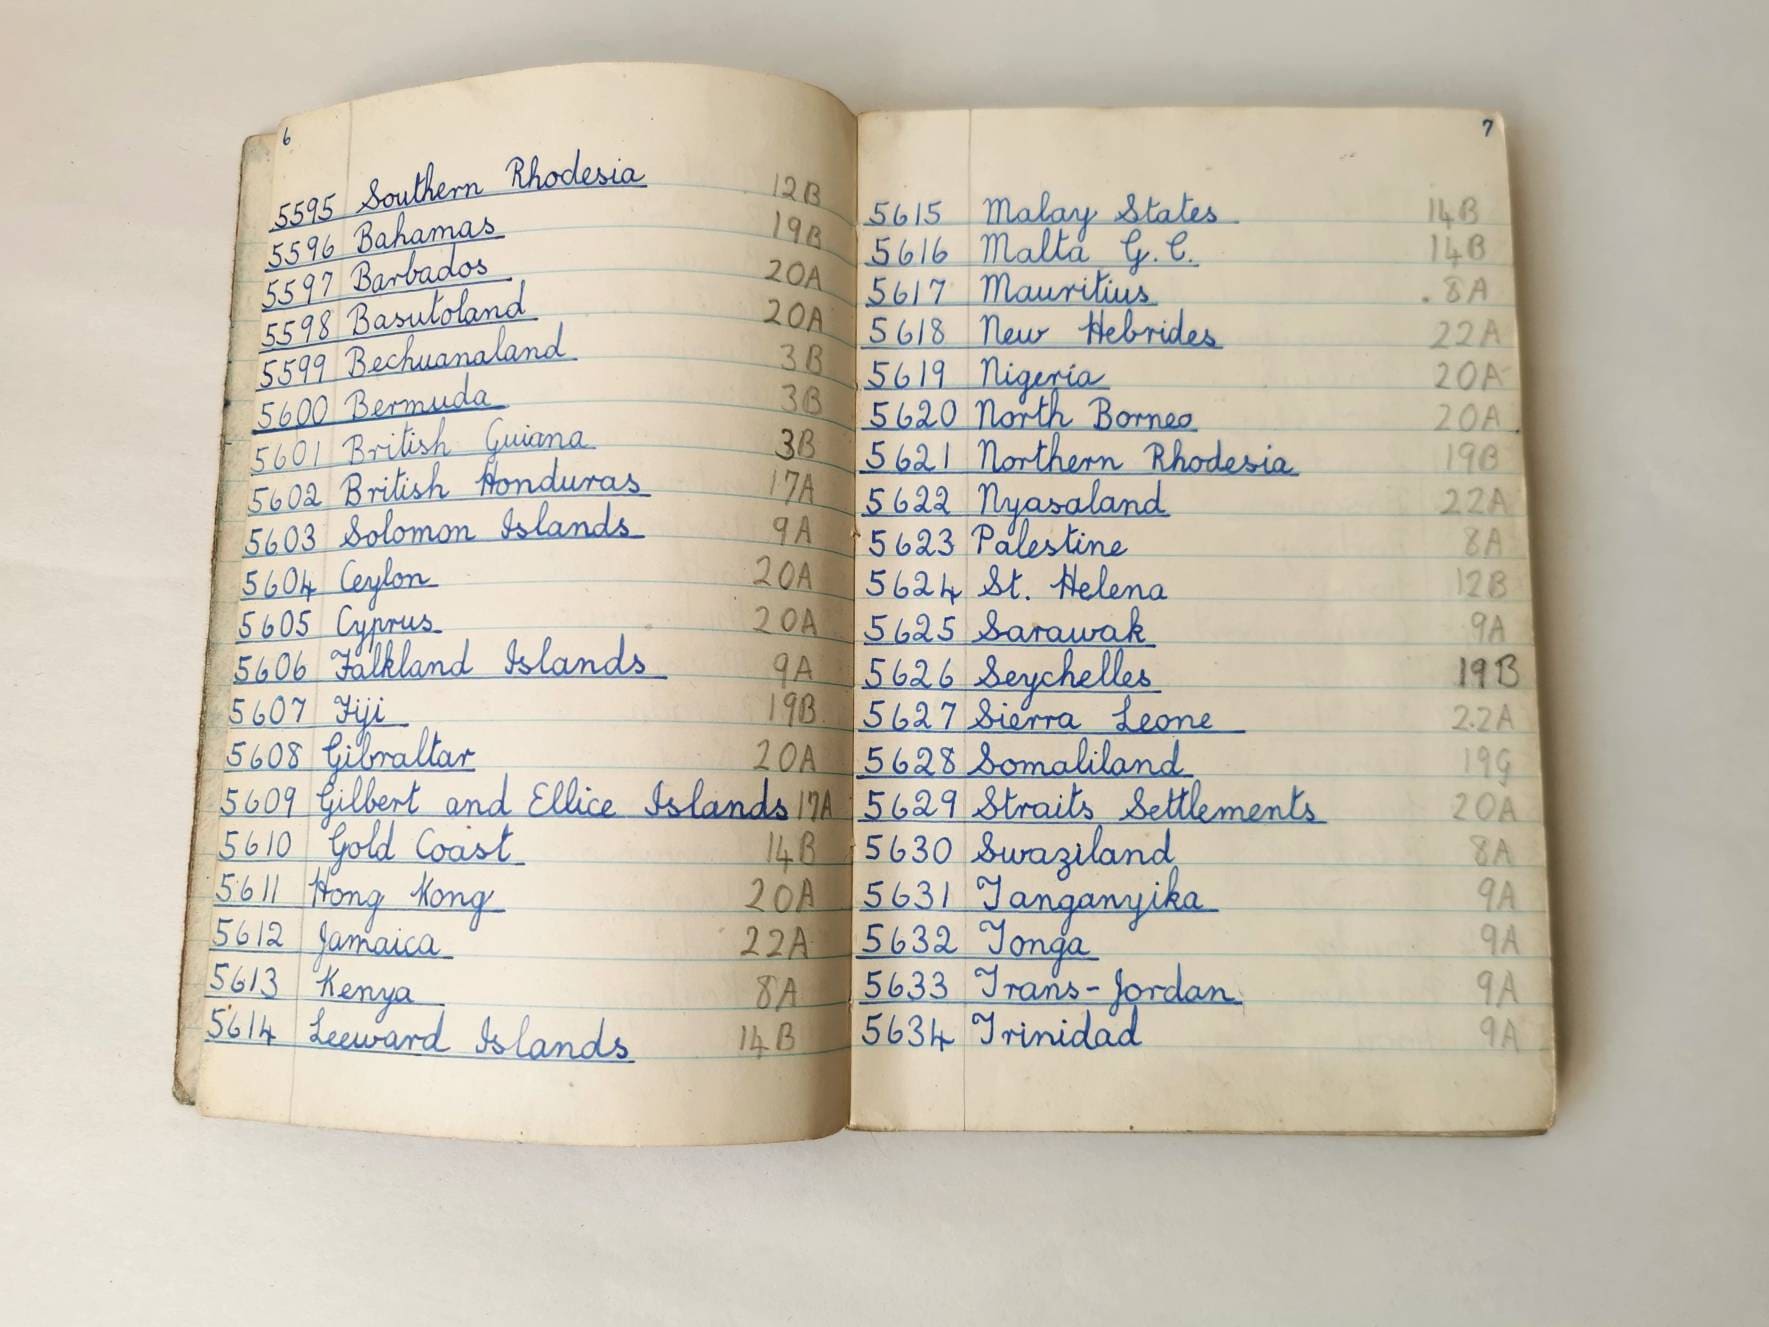 6
5595 Southern Rhodesia 12B
5596 Bahamas 19B
5597 Barbados 20A
5598 Basutoland 20A
5599 Bechuanaland 3B
5600 Bermuda 3B
5601 British Guiana 3B
5602 British Honduras 17A
5603 Solomon Islands 9A
5604 Ceylon 20A
5605 Cyprus 20A
5606 Falkland Islands 9A
5607 Fiji 19B
5608 Gibraltar 20A
5609 Gilbert and Ellice Islands 17A
5610 Gold Coast 14B
5611 Hong Kong 20A
5612 Jamaica 22A
5613 Kenya 8A
5614 Leeward Islands 14B
7
5615 Malay States 14B
5616 Malta G.C. 14B
5617 Mauritius 8A
5618 New Hebrides 22A
5619 Nigeria 20A
5620 North Borneo 20A
5621 Northern Rhodesia 19B
5622 Nyasaland 22A
5623 Palestine 8A
5624 St. Helena 12B
5625 Sarawak 9A
5626 Seychelles 19B
5627 Sierra Leone 22A
5628 Somaliland 19G
5629 Straits Settlements 20A
5630 Swaziland 8A
5631 Tanganyika 9A
5632 Tonga 9A
5633 Trans-Jordan 9A
5634 Trinidad 9A